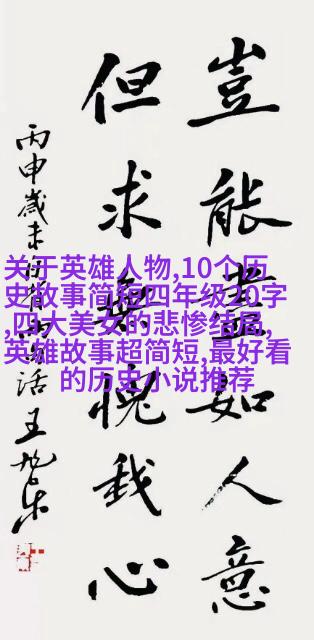 豈能盡如人意
但求無愧我心
丙申歲末
王旭东
关于英雄人物,10个历
史故事简短四年级20字
,四大美女的悲惨结局,
英雄故事超简短,最好看
的历史小说推荐